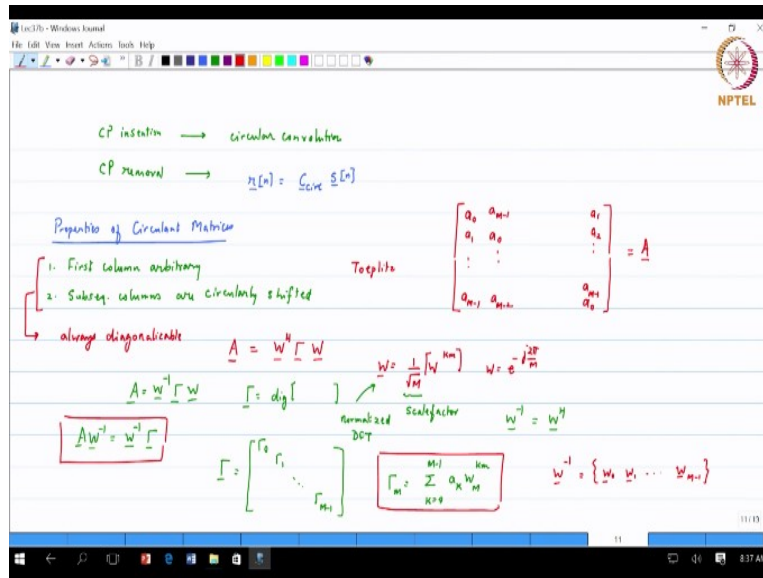 Lec37b - Windows Journal
File Edit View Insert Actions Tools Help
B I
NPTEL
CP insertion → circular convolution
CP removal → r[n] = C_circ s[n]
Properties of Circulant Matrices
1. First column arbitrary
2. Subseq. columns are circularly shifted
always diagonalicable
Toeplitz
a_0 a_{M-1} a_1
a_1 a_0 a_2
⋮ ⋮ ⋮
a_{M-1}
a_{M-1} a_{M-2} a_0
= A
A = W^H Γ W
W = 1/√M [W^{km}] W = e^{-j2π/M}
scalefactor
normalized
DCT
A = W^{-1} Γ W Γ = dig[ ]
W^{-1} = W^H
A W^{-1} = W^{-1} Γ
Γ = [Γ_0 Γ_1 ⋱ Γ_{M-1}]
Γ_m = Σ_{k=0}^{M-1} a_k W_M^{km}
W^{-1} = {W_0 W_1 ⋯ W_{M-1}}
11/13
11
8:37 AM